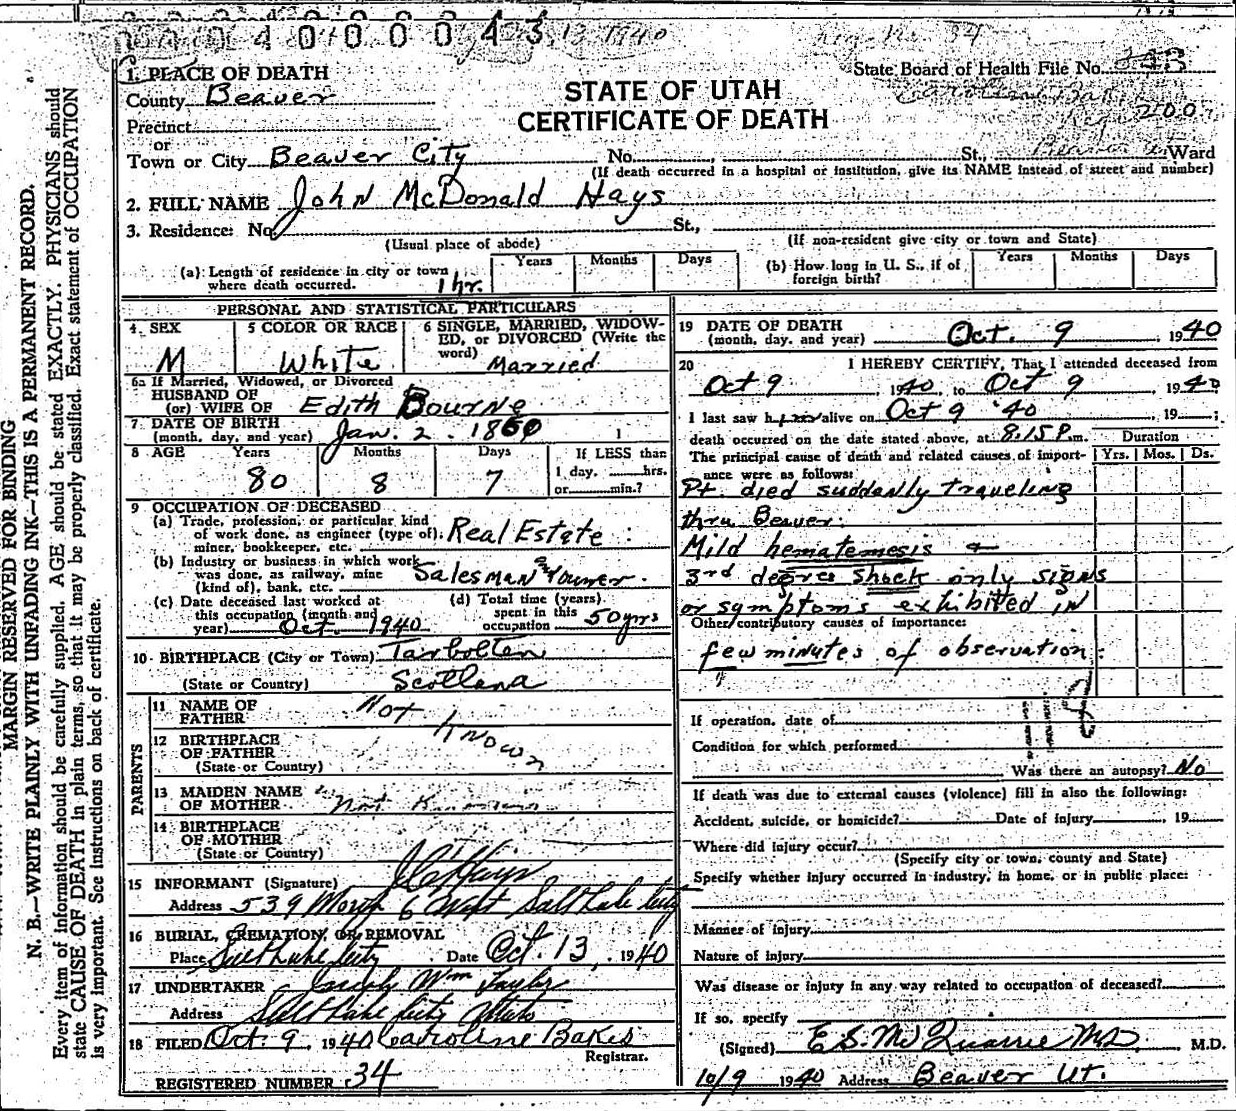 0 4 0 0 0 0 4 3 13 1940
Reg. No. 34
1. PLACE OF DEATH
State Board of Health File No. 343
County Beaver
STATE OF UTAH
CERTIFICATE OF DEATH
Precinct
or
Town or City Beaver City No. St., Ward
(If death occurred in a hospital or institution, give its NAME instead of street and number)
2. FULL NAME John McDonald Hays
3. Residence: No. St.,
(Usual place of abode) (If non-resident give city or town and State)
(a) Length of residence in city or town where death occurred. 1 hr. Years Months Days
(b) How long in U. S., if of foreign birth? Years Months Days
PERSONAL AND STATISTICAL PARTICULARS
4. SEX M
5 COLOR OR RACE White
6 SINGLE, MARRIED, WIDOWED, or DIVORCED (Write the word) Married
6a If Married, Widowed, or Divorced
HUSBAND OF
(or) WIFE OF Edith Bourne
7 DATE OF BIRTH
(month, day, and year) Jan. 2. 1860
8 AGE Years Months Days If LESS than
1 day, hrs.
or min.?
80 8 7
9 OCCUPATION OF DECEASED
(a) Trade, profession, or particular kind
of work done, as engineer (type of),
miner, bookkeeper, etc. Real Estate
(b) Industry or business in which work
was done, as railway, mine
(kind of), bank, etc. Salesman and owner.
(c) Date deceased last worked at
this occupation (month and
year) Oct. 1940
(d) Total time (years)
spent in this
occupation 50 yrs
10 BIRTHPLACE (City or Town) Tarbolten
(State or Country) Scotland
PARENTS
11 NAME OF
FATHER Not Known
12 BIRTHPLACE
OF FATHER
(State or Country)
13 MAIDEN NAME
OF MOTHER Not Known
14 BIRTHPLACE
OF MOTHER
(State or Country)
15 INFORMANT (Signature) J C Hays
Address 539 North 6 West Salt Lake City
16 BURIAL, CREMATION, OR REMOVAL
Place Salt Lake City Date Oct. 13, 1940
17 UNDERTAKER Wm Taylor
Address Salt Lake City Utah
18 FILED Oct. 9, 1940 Caroline Bakes
Registrar.
REGISTERED NUMBER 34
19 DATE OF DEATH
(month, day, and year) Oct. 9, 1940
20 I HEREBY CERTIFY, That I attended deceased from
Oct 9, 1940, to Oct 9, 1940
I last saw him alive on Oct 9 '40, 19 ;
death occurred on the date stated above, at 8:15 P.m.
Duration
The principal cause of death and related causes of importance were as follows:
Yrs. Mos. Ds.
Pt. died suddenly traveling
thru Beaver.
Mild hematemesis &
3rd degree shock only signs
or symptoms exhibited in
Other contributory causes of importance:
few minutes of observation.
If operation, date of
Condition for which performed
Was there an autopsy? No
If death was due to external causes (violence) fill in also the following:
Accident, suicide, or homicide? Date of injury , 19
Where did injury occur?
(Specify city or town, county and State)
Specify whether injury occurred in industry, in home, or in public place:
Manner of injury
Nature of injury
Was disease or injury in any way related to occupation of deceased?
If so, specify
(Signed) E. S. McQuarrie MD. M.D.
10/9 1940 Address Beaver Ut.
MARGIN RESERVED FOR BINDING
N. B.—WRITE PLAINLY WITH UNFADING INK—THIS IS A PERMANENT RECORD.
Every item of information should be carefully supplied. AGE should be stated EXACTLY. PHYSICIANS should
state CAUSE OF DEATH in plain terms, so that it may be properly classified. Exact statement of OCCUPATION
is very important. See instructions on back of certificate.